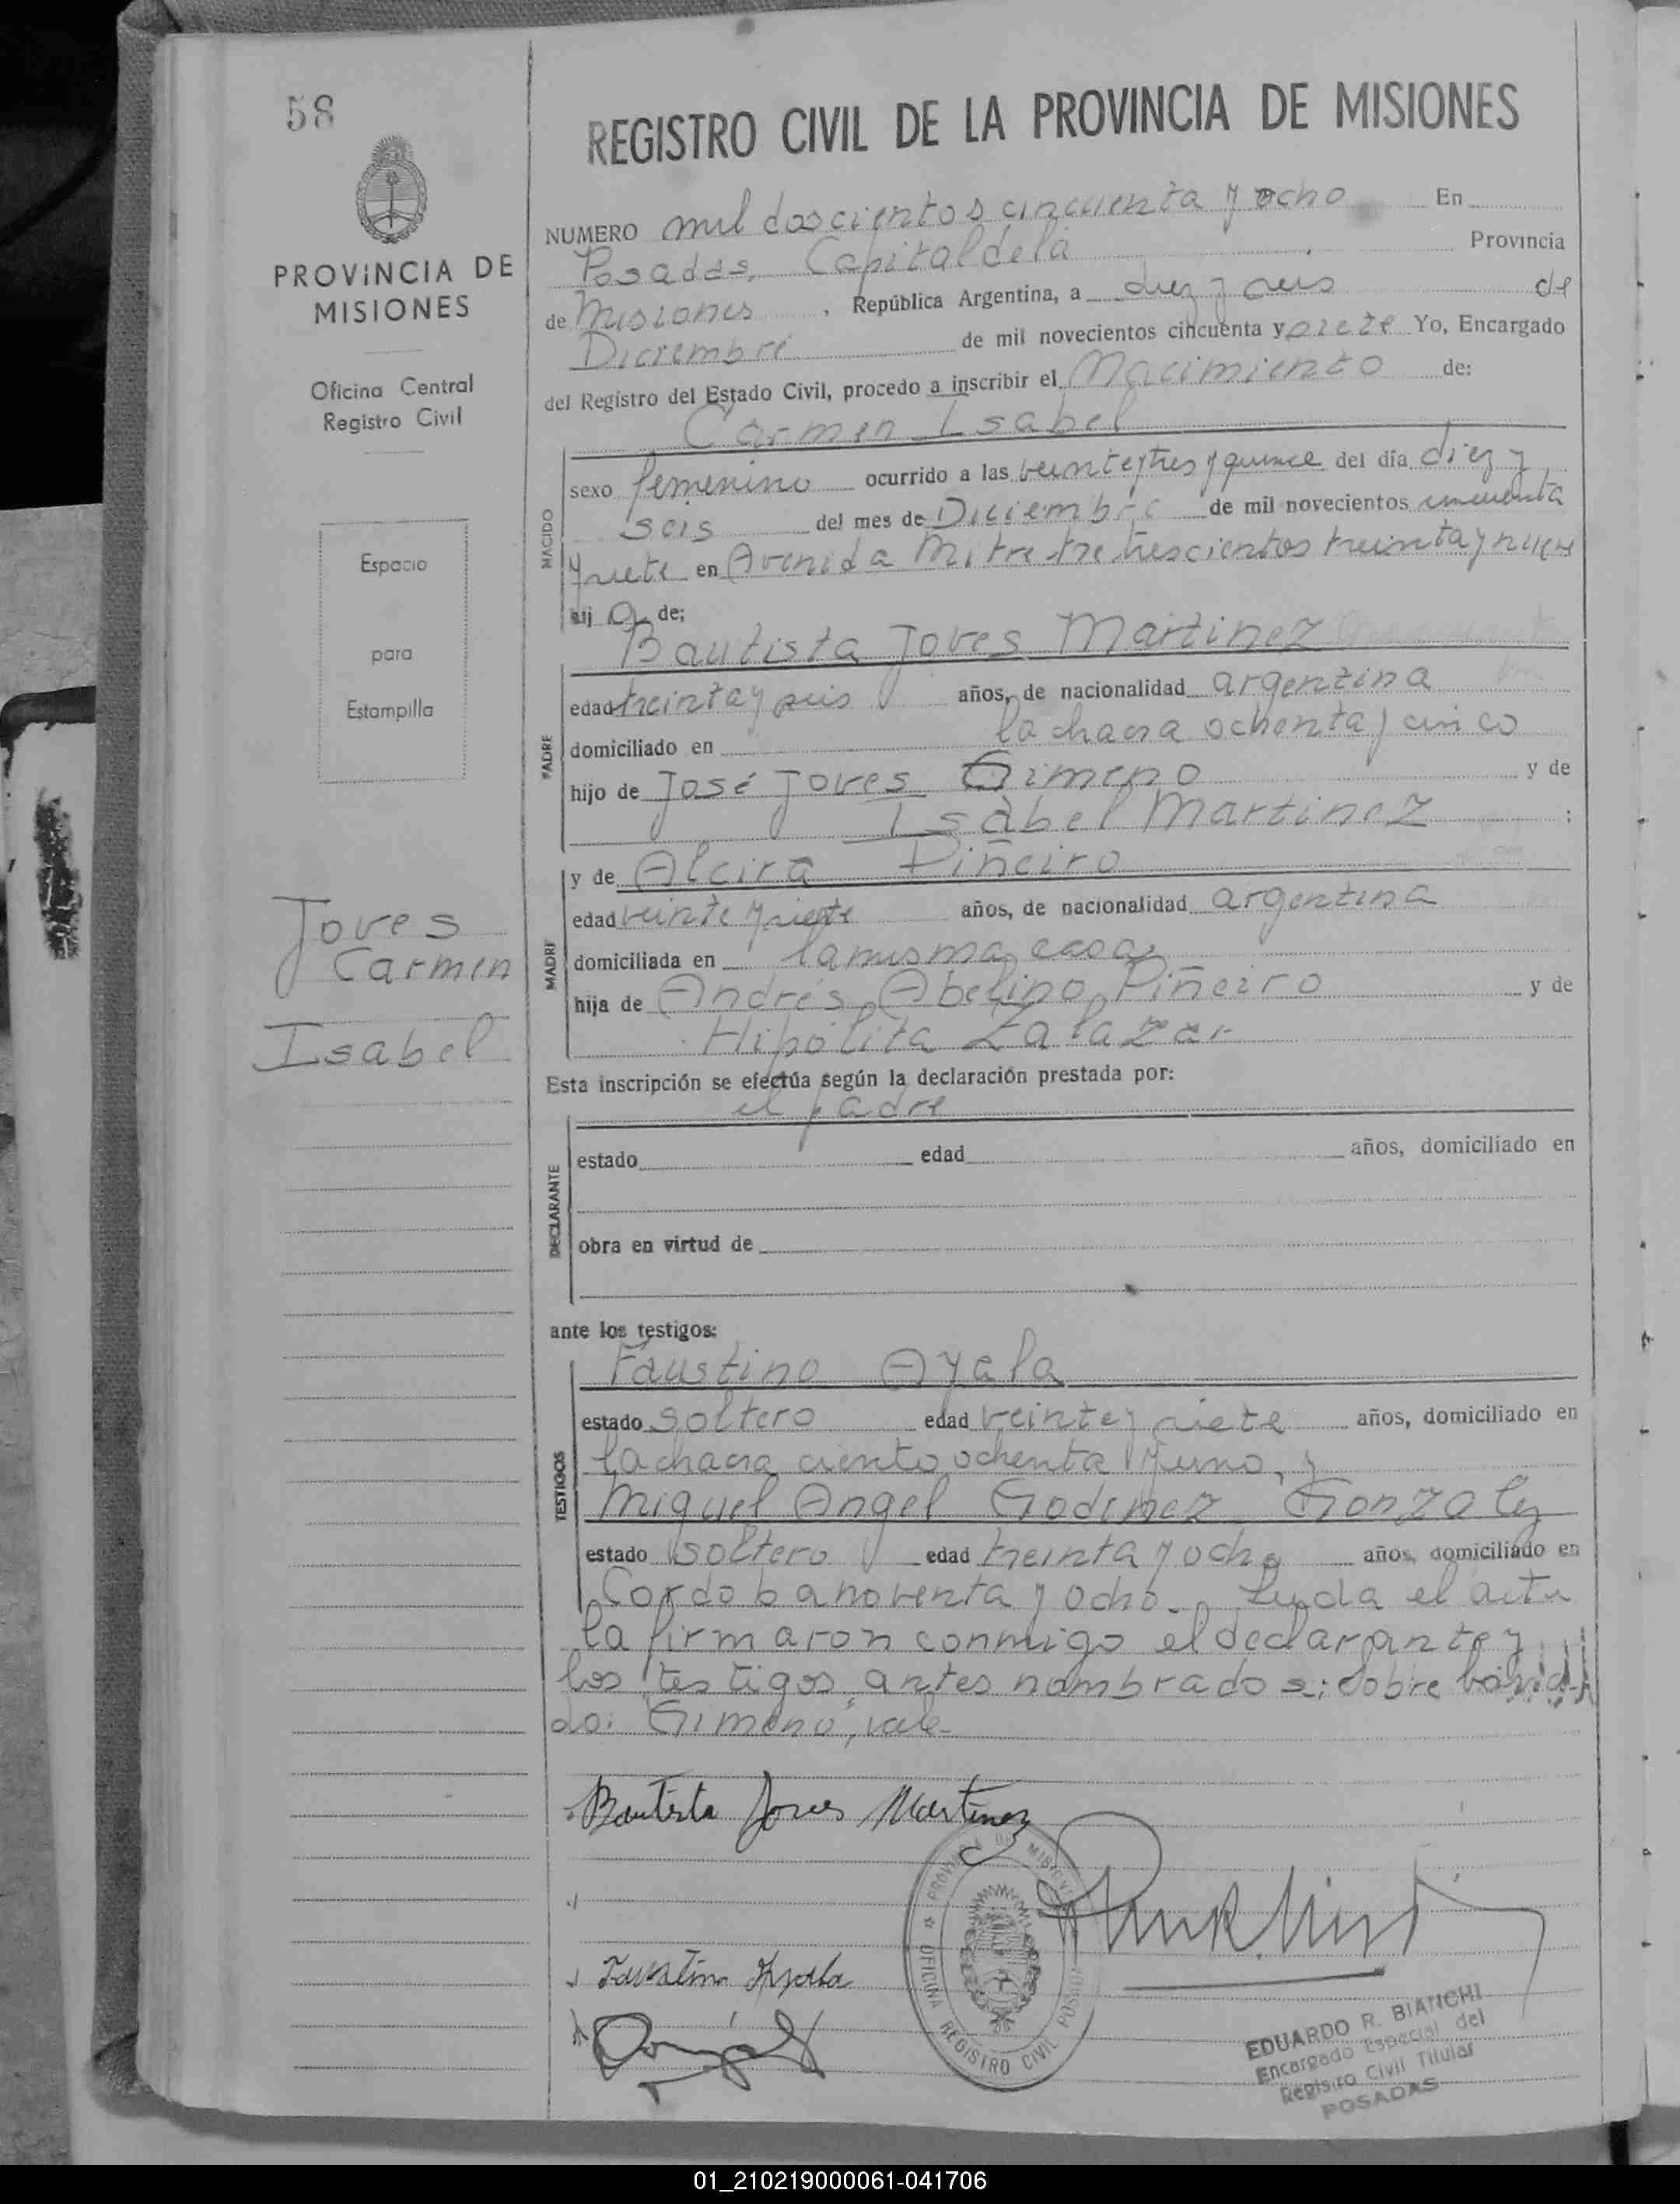 58
PROVINCIA DE
MISIONES
Oficina Central
Registro Civil
Espacio
para
Estampilla
Joves
Carmen
Isabel
REGISTRO CIVIL DE LA PROVINCIA DE MISIONES
NUMERO mil doscientos cincuenta y ocho En
Posadas, Capital de la Provincia
de Misiones, República Argentina, a diez y seis de
Diciembre de mil novecientos cincuenta y siete Yo, Encargado
del Registro del Estado Civil, procedo a inscribir el Nacimiento de:
Carmen Isabel
NACIDO
sexo femenino ocurrido a las veinte y tres y quince del día diez y
seis del mes de Diciembre de mil novecientos cincuenta
y siete en Avenida Mitre tre trescientos treinta y nueve
hija de;
Bautista Joves Martinez
PADRE
edad treinta y seis años, de nacionalidad argentina
domiciliado en la chacra ochenta y cinco
hijo de José Joves Gimeno y de
Isabel Martinez ;
y de Alcira Piñeiro
MADRE
edad veinte y siete años, de nacionalidad argentina
domiciliada en la misma casa
hija de Andrés Abelino Piñeiro y de
Hipólita Zalazar
Esta inscripción se efectúa según la declaración prestada por:
el padre
DECLARANTE
estado edad años, domiciliado en
obra en virtud de
ante los testigos:
Faustino Ayala
TESTIGOS
estado soltero edad veinte y siete años, domiciliado en
la chacra ciento ochenta y uno, y
Miguel Angel Godinez Gonzalez
estado soltero edad treinta y ocho años, domiciliado en
Cordoba noventa y ocho.- Leida el acta
la firmaron conmigo el declarante y
los testigos antes nombrados; sobre borra-
do: "Gimeno", vale-
Bautista Joves Martinez
Faustino Ayala
PROVINCIA DE MISIONES
OFICINA REGISTRO CIVIL POSADAS
EDUARDO R. BIANCHI
Encargado Especial del
Registro Civil Titular
POSADAS
01_210219000061-041706